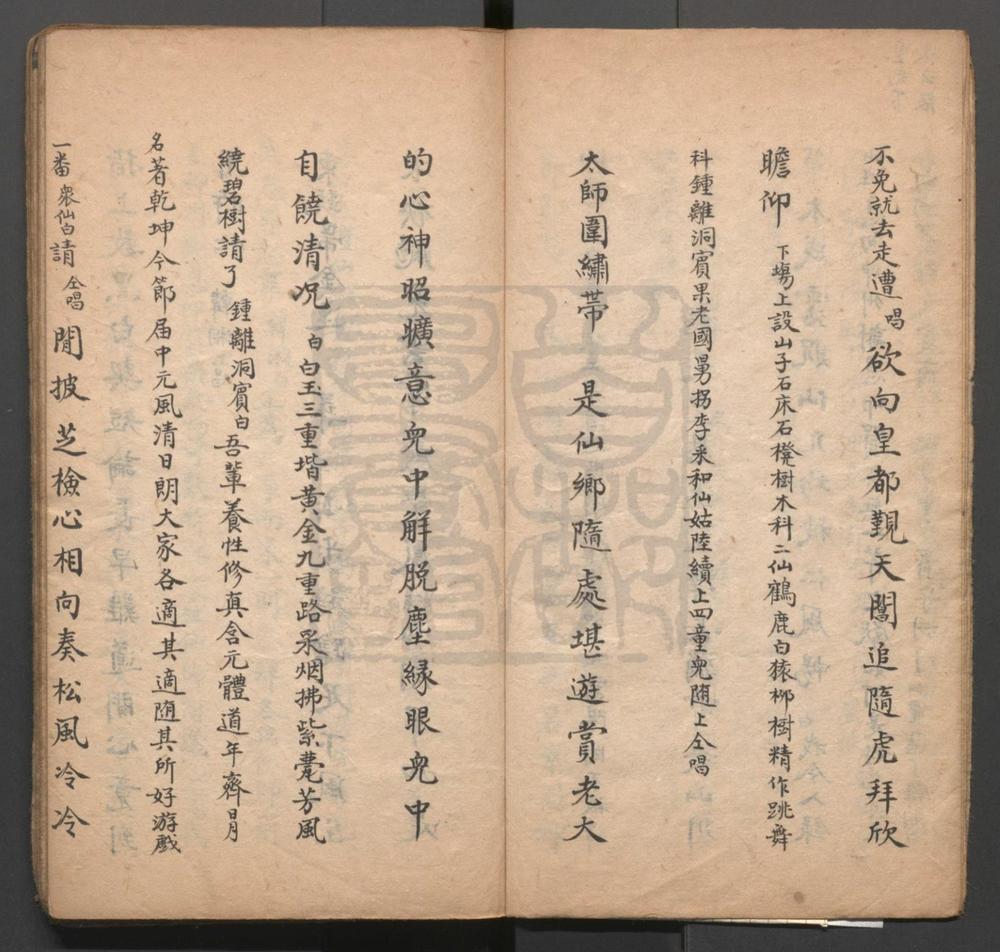 不免就去走遭唱欲向皇都覲天閶追隨虎拜欣
瞻仰下塲上設山子石床石櫈樹木科二仙鶴鹿白猿柳樹精作跳舞
科鍾離洞賓果老國舅拐李采和仙姑陸續上四童兒隨上仝唱
太師圍繡帶是仙鄉隨處堪遊賞老大
的心神昭曠意兒中解脫塵緣眼兒中
自饒清况白白玉三重堦黄金九重路采烟拂紫甍芳風
繞碧樹請了鍾離洞賓白吾輩養性修真含元體道年齊日月
名著乾坤今節届中元風清日朗大家各適其適随其所好游戲
一番衆仙白請仝唱閒披芝檢心相向奏松風冷冷